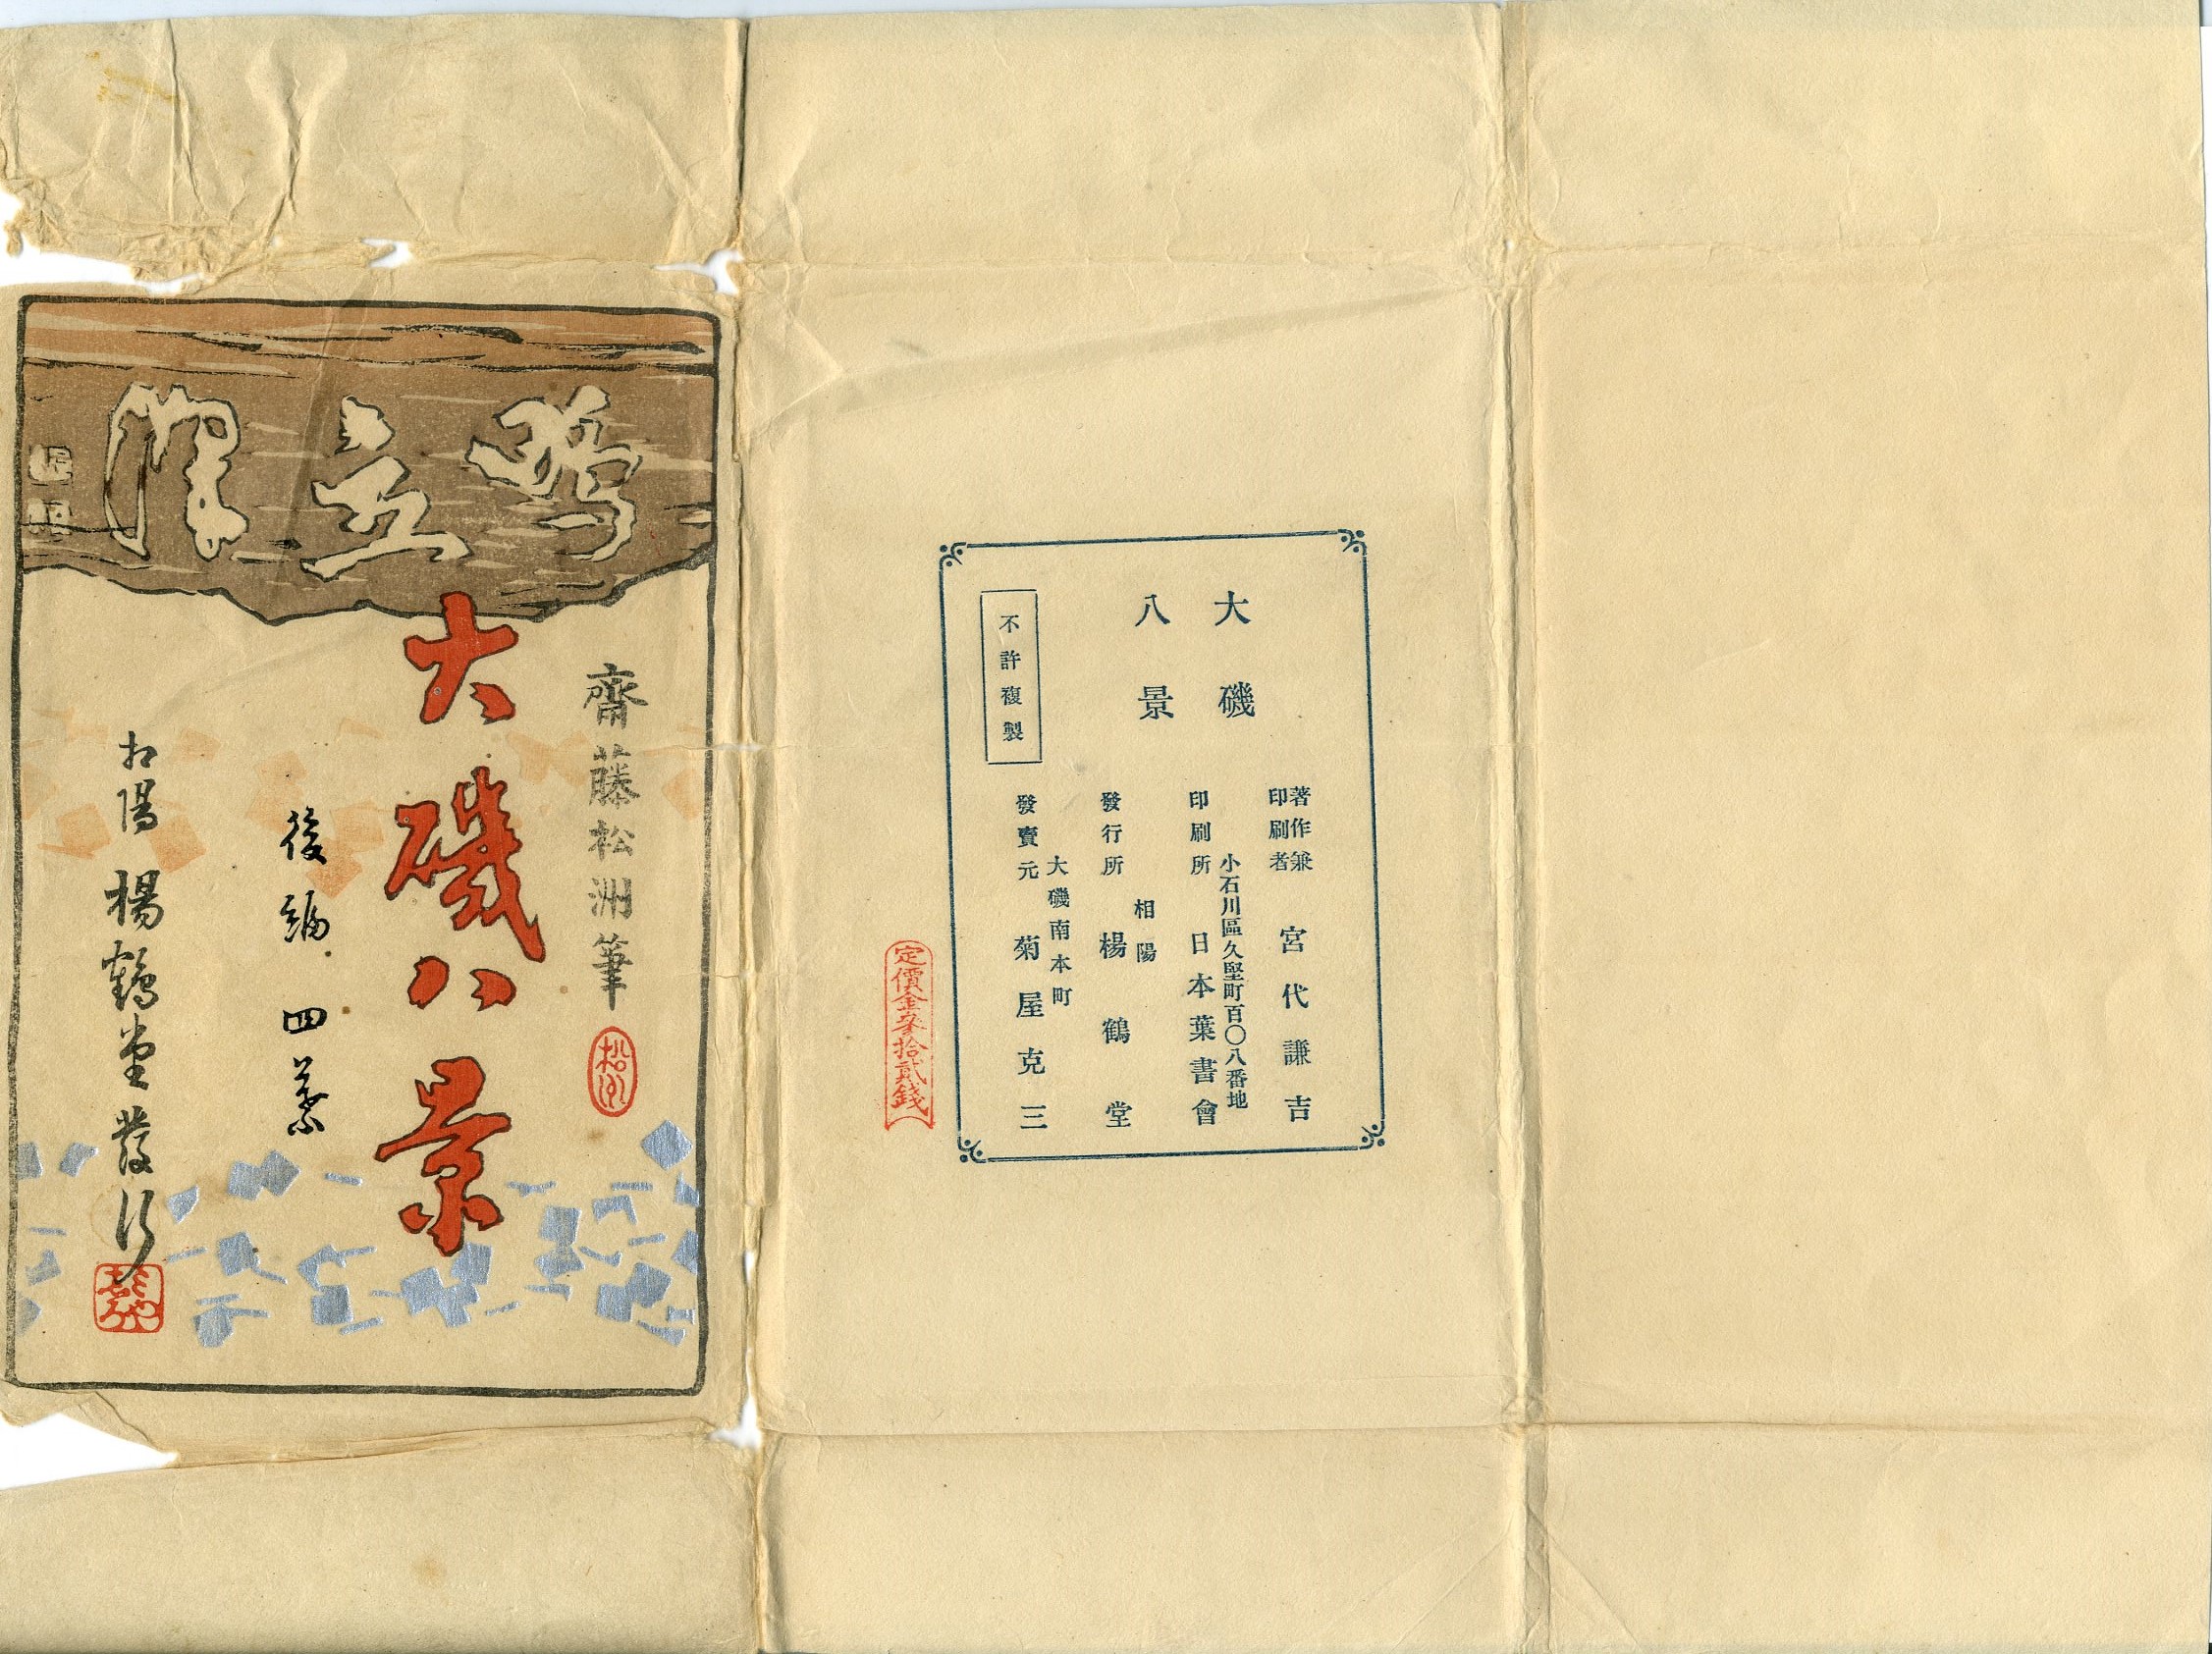 鴫立澤
齋藤松洲筆
松洲
大磯八景
後編 四葉
相陽 楊鶴堂發行
大磯
八景
不許複製
著作兼
印刷者
宮代謙吉
小石川區久堅町百〇八番地
印刷所 日本葉書會
相陽
發行所 楊鶴堂
大磯南本町
發賣元 菊屋克三
定價金參拾貳錢